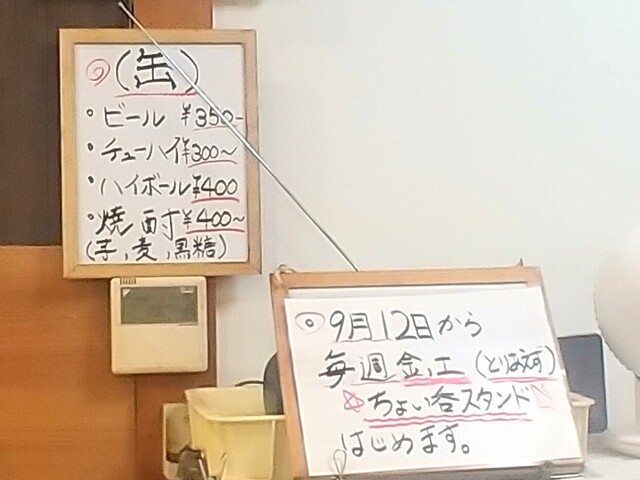 (缶)
・ビール ¥350-
・チューハイ ¥300~
・ハイボール ¥400
・焼酎 ¥400~
(芋,麦,黒糖)
9月12日から
毎週金,土 (とりあえず)
☆ちょい呑スタンド
はじめます。